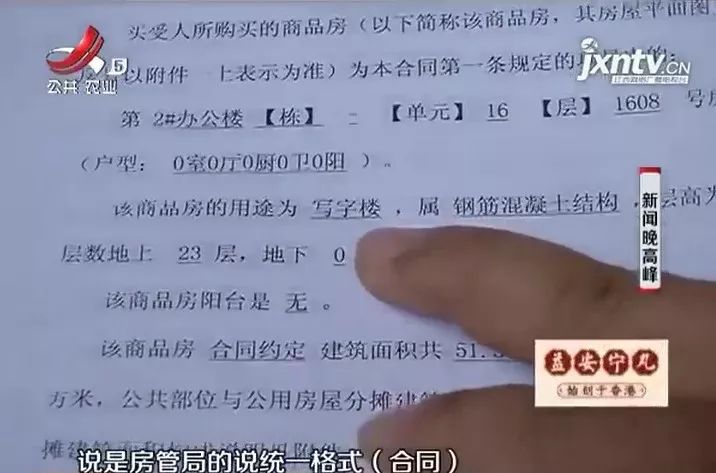 买受人所购买的商品房（以下简称该商品房，其房屋平面图
5
公共 农业
以附件一上表示为准）为本合同第一条规定的
jxntv.CN
第 2#办公楼 【栋】 - 【单元】 16 【层】 1608 号房
（户型：0室0厅0厨0卫0阳）。
该商品房的用途为 写字楼 ，属 钢筋混凝土结构 ，层高为
层数地上 23 层，地下 0
新闻晚高峰
该商品房阳台是 无 。
该商品房 合同约定 建筑面积共 51.
益安宁丸
始创于香港
方米，公共部位与公用房屋分摊建筑
摊建筑面积
说是房管局的说统一格式（合同）